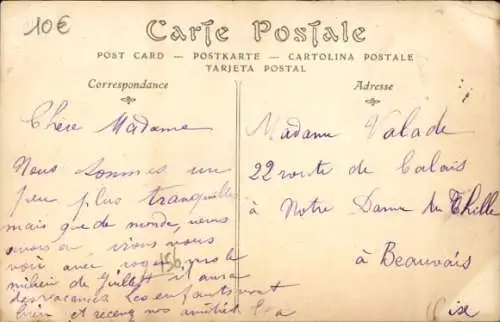 10€
Carte Postale
POST CARD — POSTKARTE — CARTOLINA POSTALE
TARJETA POSTAL
Correspondance
Adresse
Chère Madame
Nous sommes un
peu plus tranquille
mais que de monde, nous
vous
voir avec pro le
milieu de Juillet il aura
des vacances Les enfants vont
bien et recevez nos amitiés
156
Madame Valade
22 route de Calais
à Notre Dame du Thille
à Beauvais
Oise